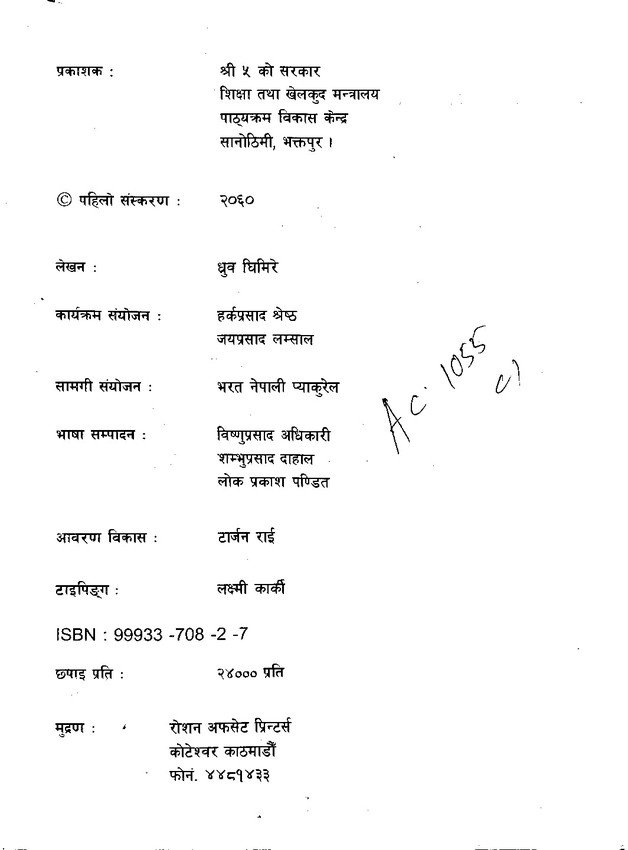 प्रकाशक : श्री ५ को सरकार
शिक्षा तथा खेलकुद मन्त्रालय
पाठ्यक्रम विकास केन्द्र
सानोठिमी, भक्तपुर ।
© पहिलो संस्करण : २०६०
लेखन : ध्रुव घिमिरे
कार्यक्रम संयोजन : हर्कप्रसाद श्रेष्ठ
जयप्रसाद लम्साल
सामगी संयोजन : भरत नेपाली प्याकुरेल
भाषा सम्पादन : विष्णुप्रसाद अधिकारी
शम्भुप्रसाद दाहाल
लोक प्रकाश पण्डित
आवरण विकास : टार्जन राई
टाइपिङ्ग : लक्ष्मी कार्की
ISBN : 99933 -708 -2 -7
छपाइ प्रति : २४००० प्रति
मुद्रण : रोशन अफसेट प्रिन्टर्स
कोटेश्वर काठमाडौँ
फोनं. ४४८१४३३
Ac. 1055
c1